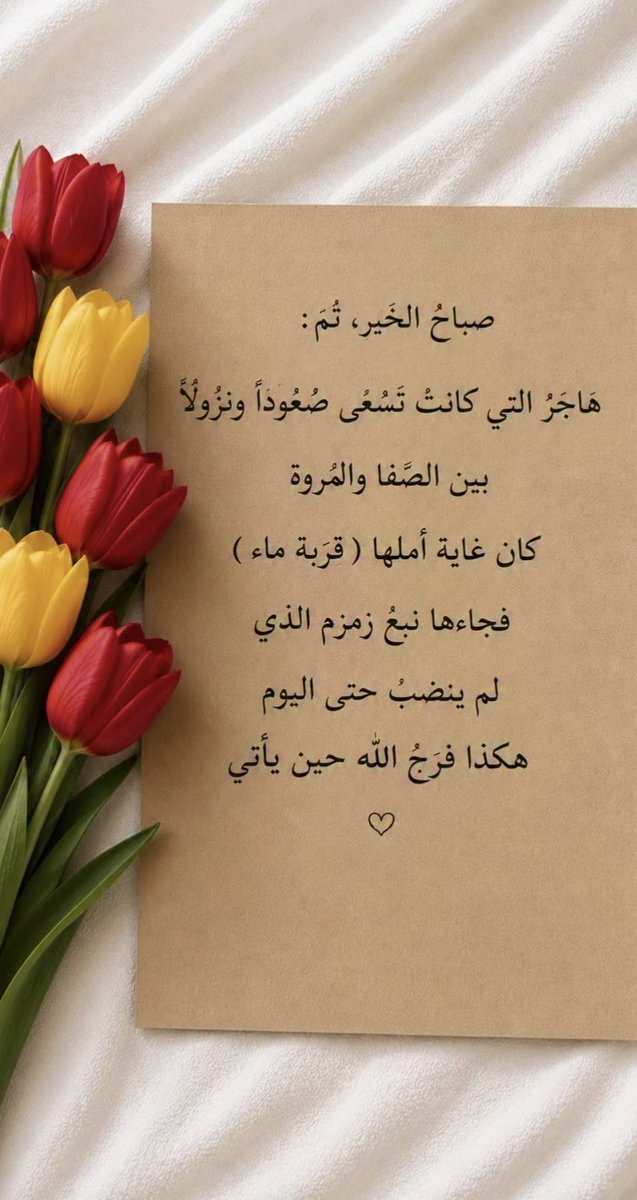 صباحُ الخَير، تُمَ :
هَاجَرُ التي كانتُ تَسُعُى صُعُودَاً ونزُولُاً
بين الصَّفا والمُروة
كان غاية أملها ( قرَبة ماء )
فجاءها نبعُ زمزم الذي
لم ينضبُ حتى اليوم
هكذا فرَجُ الله حين يأتي
♡